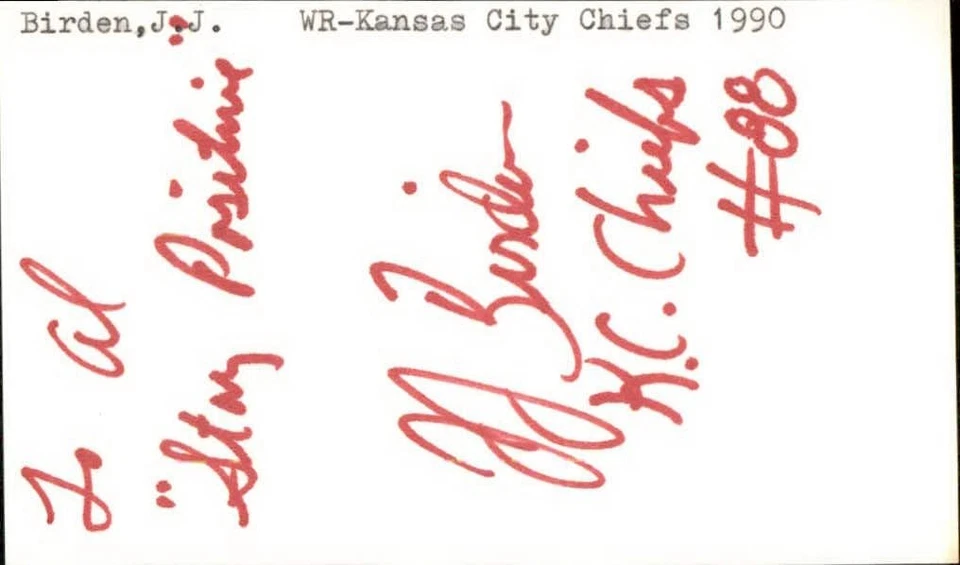 Birden,J.J. WR-Kansas City Chiefs 1990
To Al
"Stay Positive"
JJ Birden
K.C. Chiefs
#88